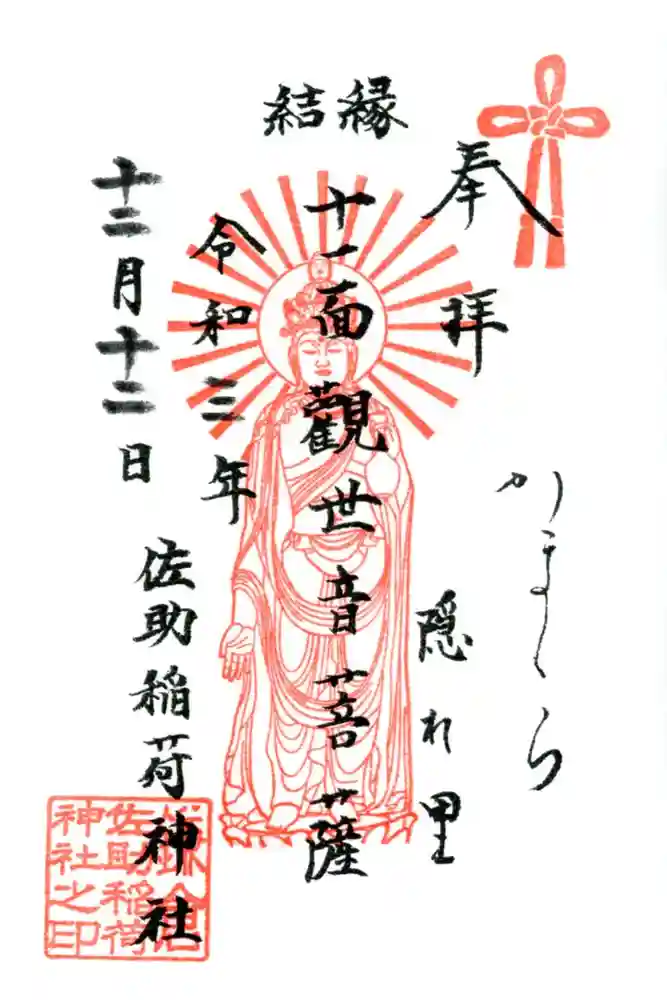 縁結
奉拝
かまくら
隠れ里
十一面觀世音菩薩
令和三年
十二月十二日
佐助稲荷神社
鎌倉
佐助稲荷
神社之印